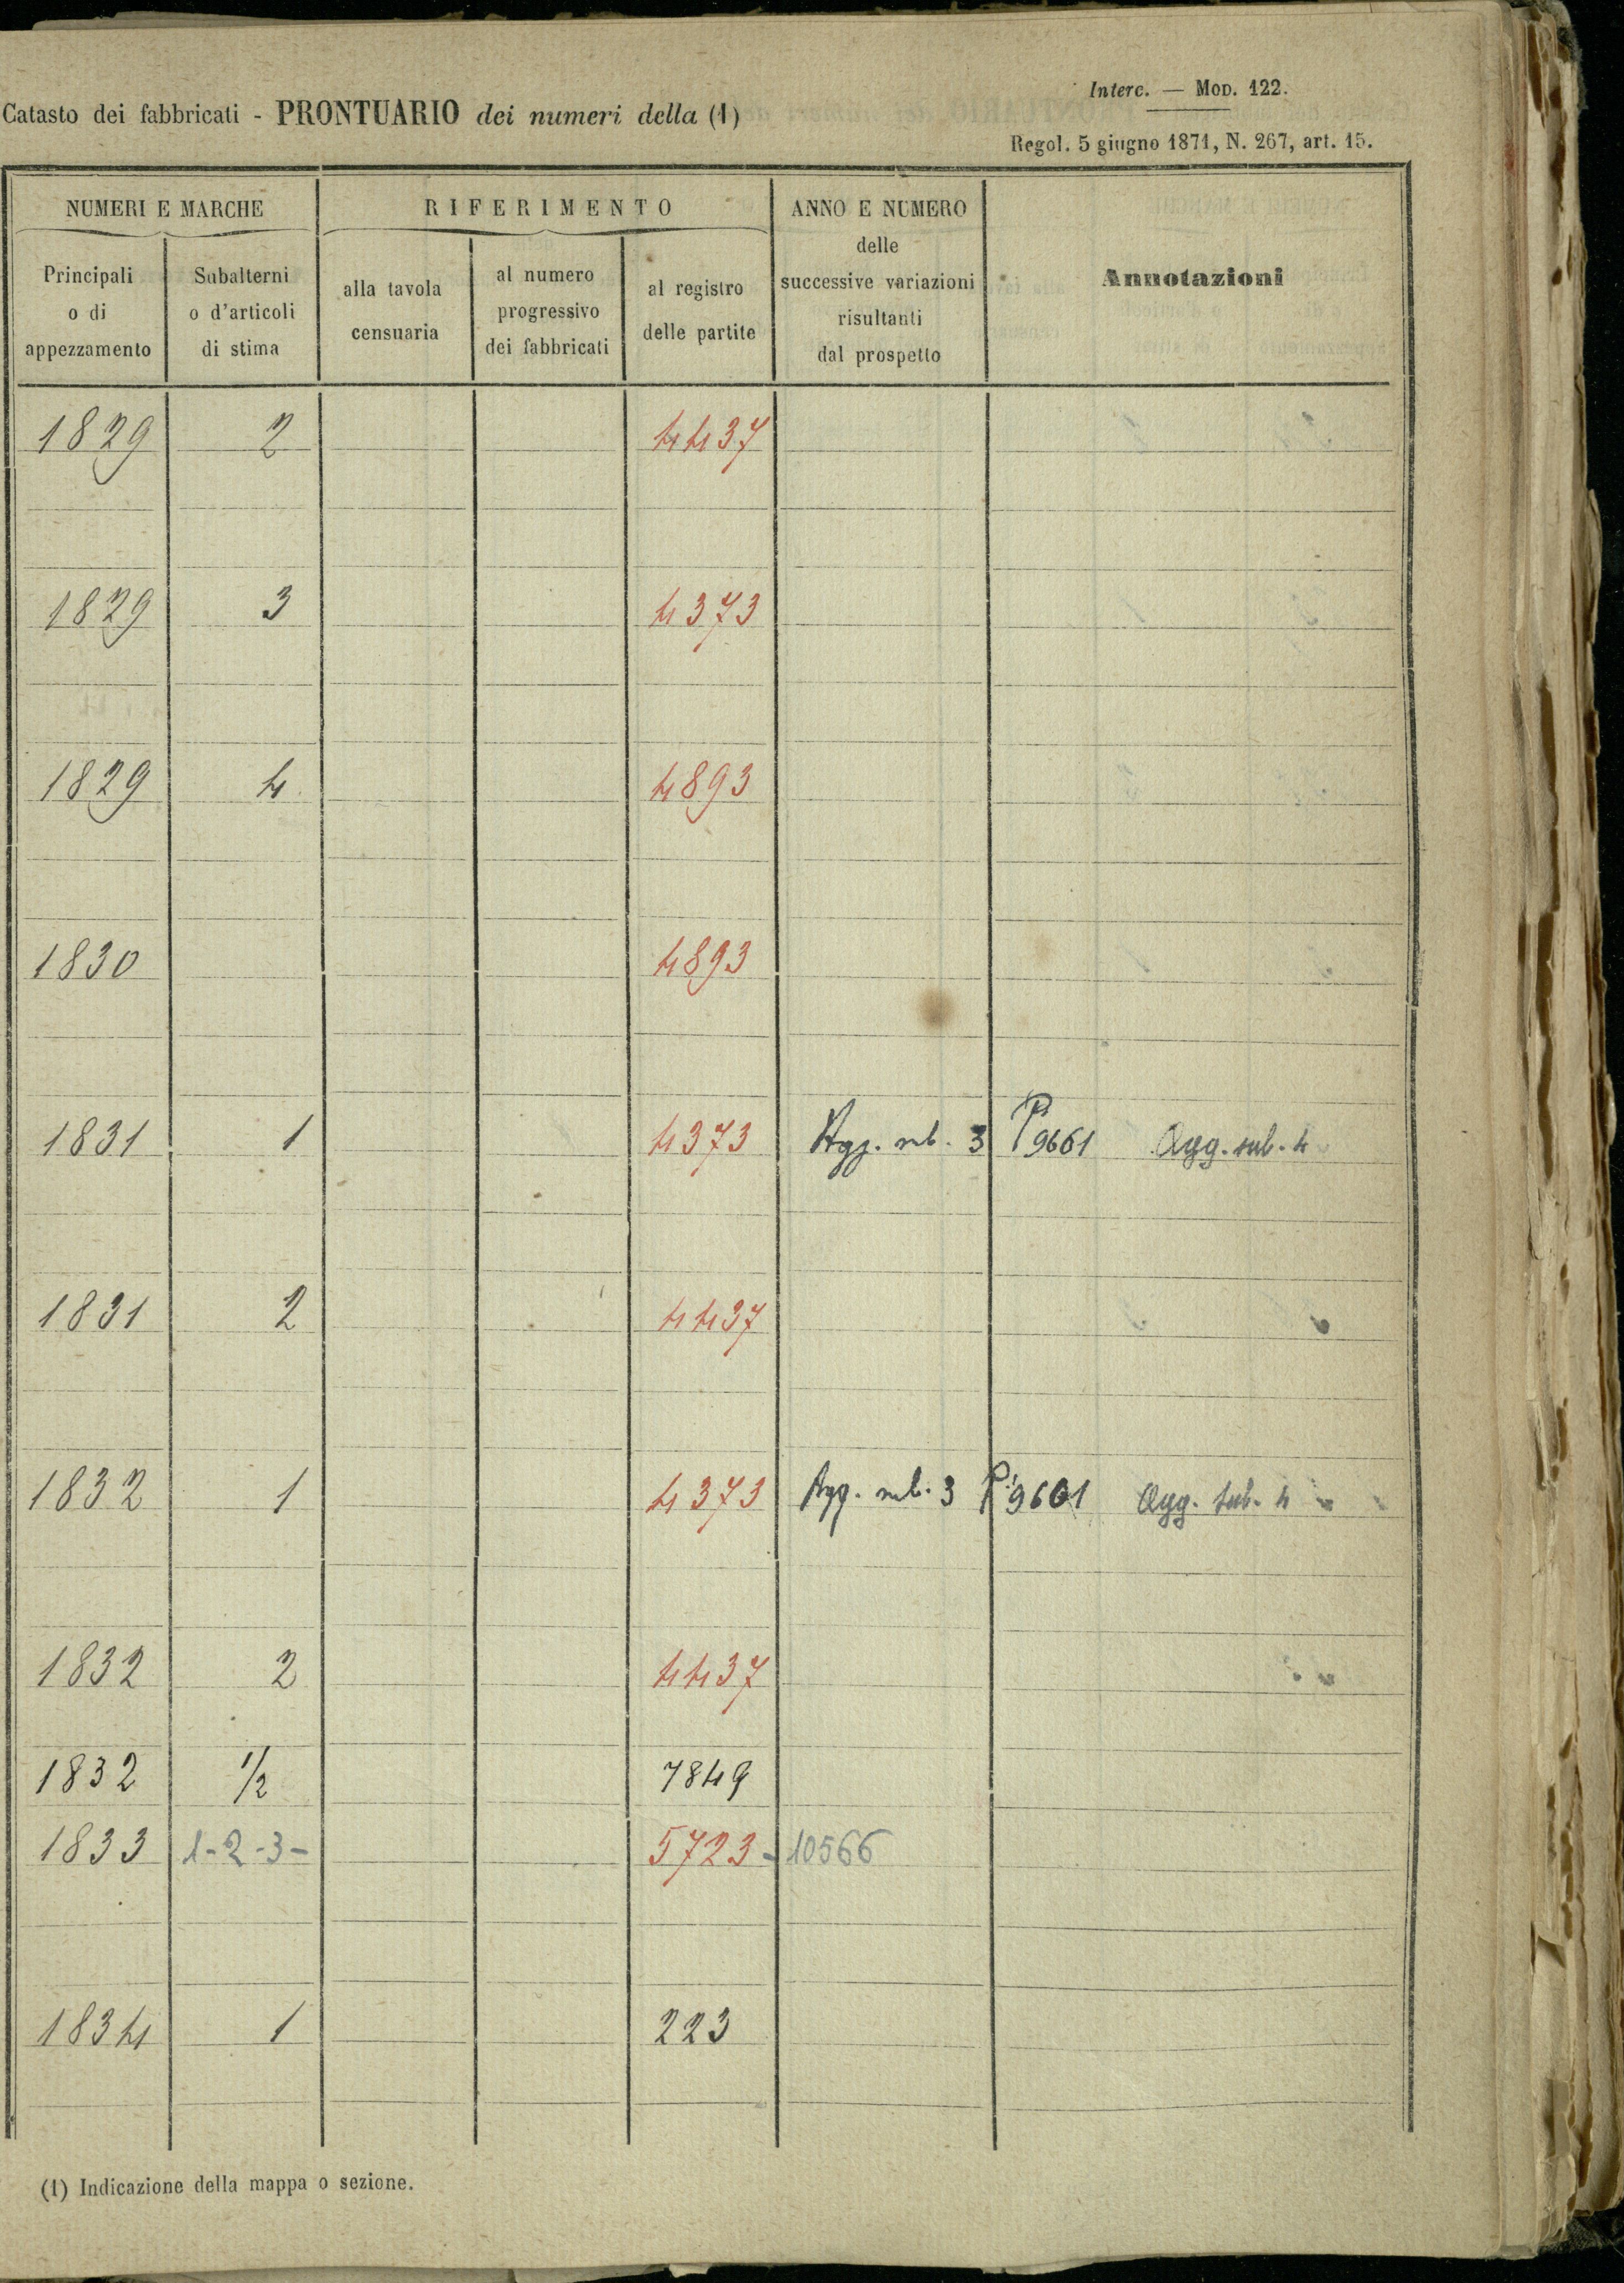 Interc. — Mod. 122.
Catasto dei fabbricati - PRONTUARIO dei numeri della (1)
Regol. 5 giugno 1871, N. 267, art. 15.
NUMERI E MARCHE RIFERIMENTO ANNO E NUMERO
delle
successive variazioni
risultanti
dal prospetto
Annotazioni
Principali
o di
appezzamento
Subalterni
o d'articoli
di stima
alla tavola
censuaria
al numero
progressivo
dei fabbricati
al registro
delle partite
1829 2 4437
1829 3 4373
1829 4 4893
1830 4893
1831 1 4373 Agg. sub. 3 Pi 9661 Agg. sub. 4
1831 2 4437
1832 1 4373 Agg. sub. 3 Pi 9661 Agg. sub. 4
1832 2 4437
1832 1/2 7849
1833 1-2-3- 5723 - 10566
1834 1 223
(1) Indicazione della mappa o sezione.